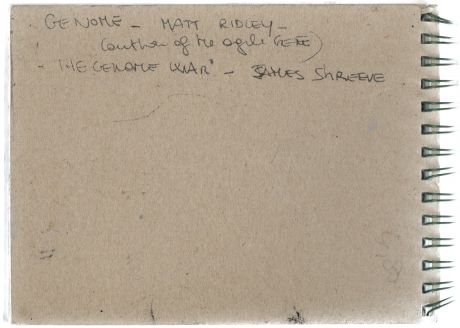 GENOME - MATT RIDLEY -
(author of the agile GENE)
- THE GENOME WAR' - JAMES SHREEVE